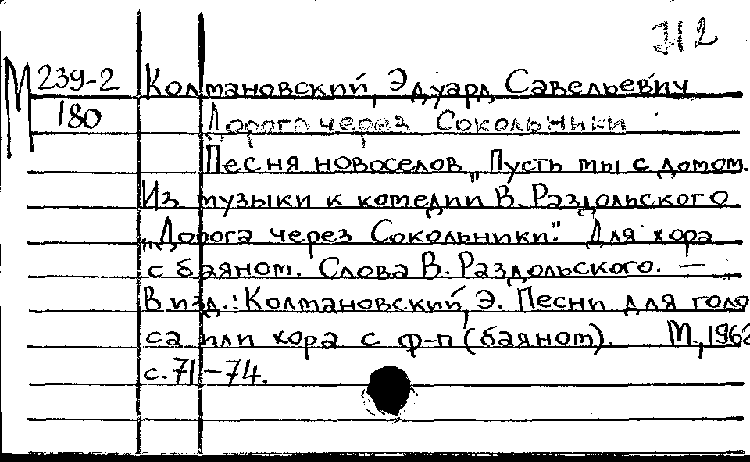 Н2
М 239-2 Колмановский, Эдуард Савельевич
180 Дорога через Сокольники
Песня новоселов „Пусть мы с домом.
Из музыки к комедии В. Раздольского
„Дорога через Сокольники". Для хора
с баяном. Слова В. Раздольского. —
В изд.: Колмановский, Э. Песни для голо
са или хора с ф-п (баяном). М., 1962
с. 71-74.